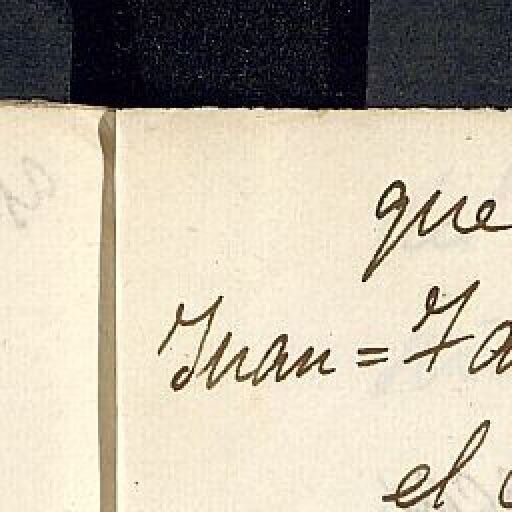 que
Juan =
el